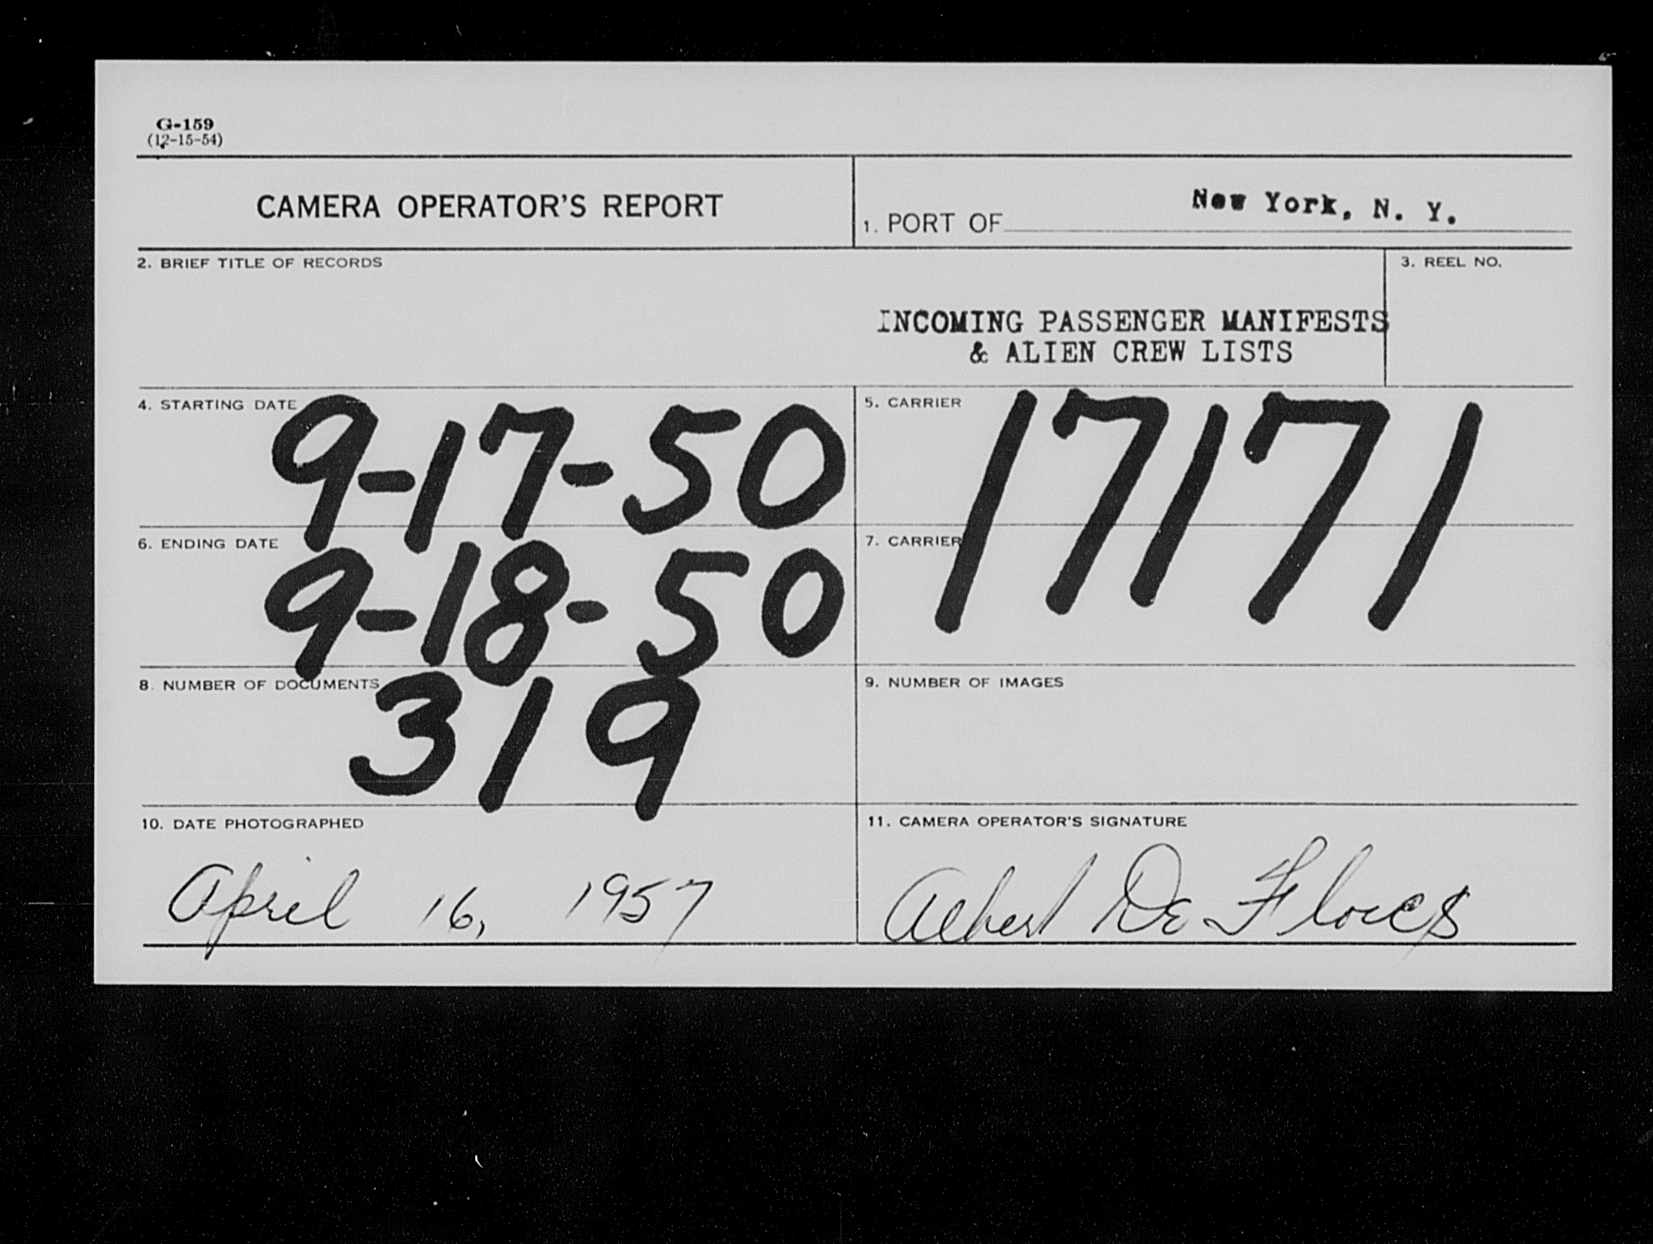 G-159
(12-15-54)
CAMERA OPERATOR'S REPORT
1. PORT OF New York, N. Y.
2. BRIEF TITLE OF RECORDS
3. REEL NO.
INCOMING PASSENGER MANIFESTS
& ALIEN CREW LISTS
4. STARTING DATE 9-17-50
5. CARRIER 17171
6. ENDING DATE 9-18-50
7. CARRIER
8. NUMBER OF DOCUMENTS 319
9. NUMBER OF IMAGES
10. DATE PHOTOGRAPHED
April 16, 1957
11. CAMERA OPERATOR'S SIGNATURE
Albert De Flores